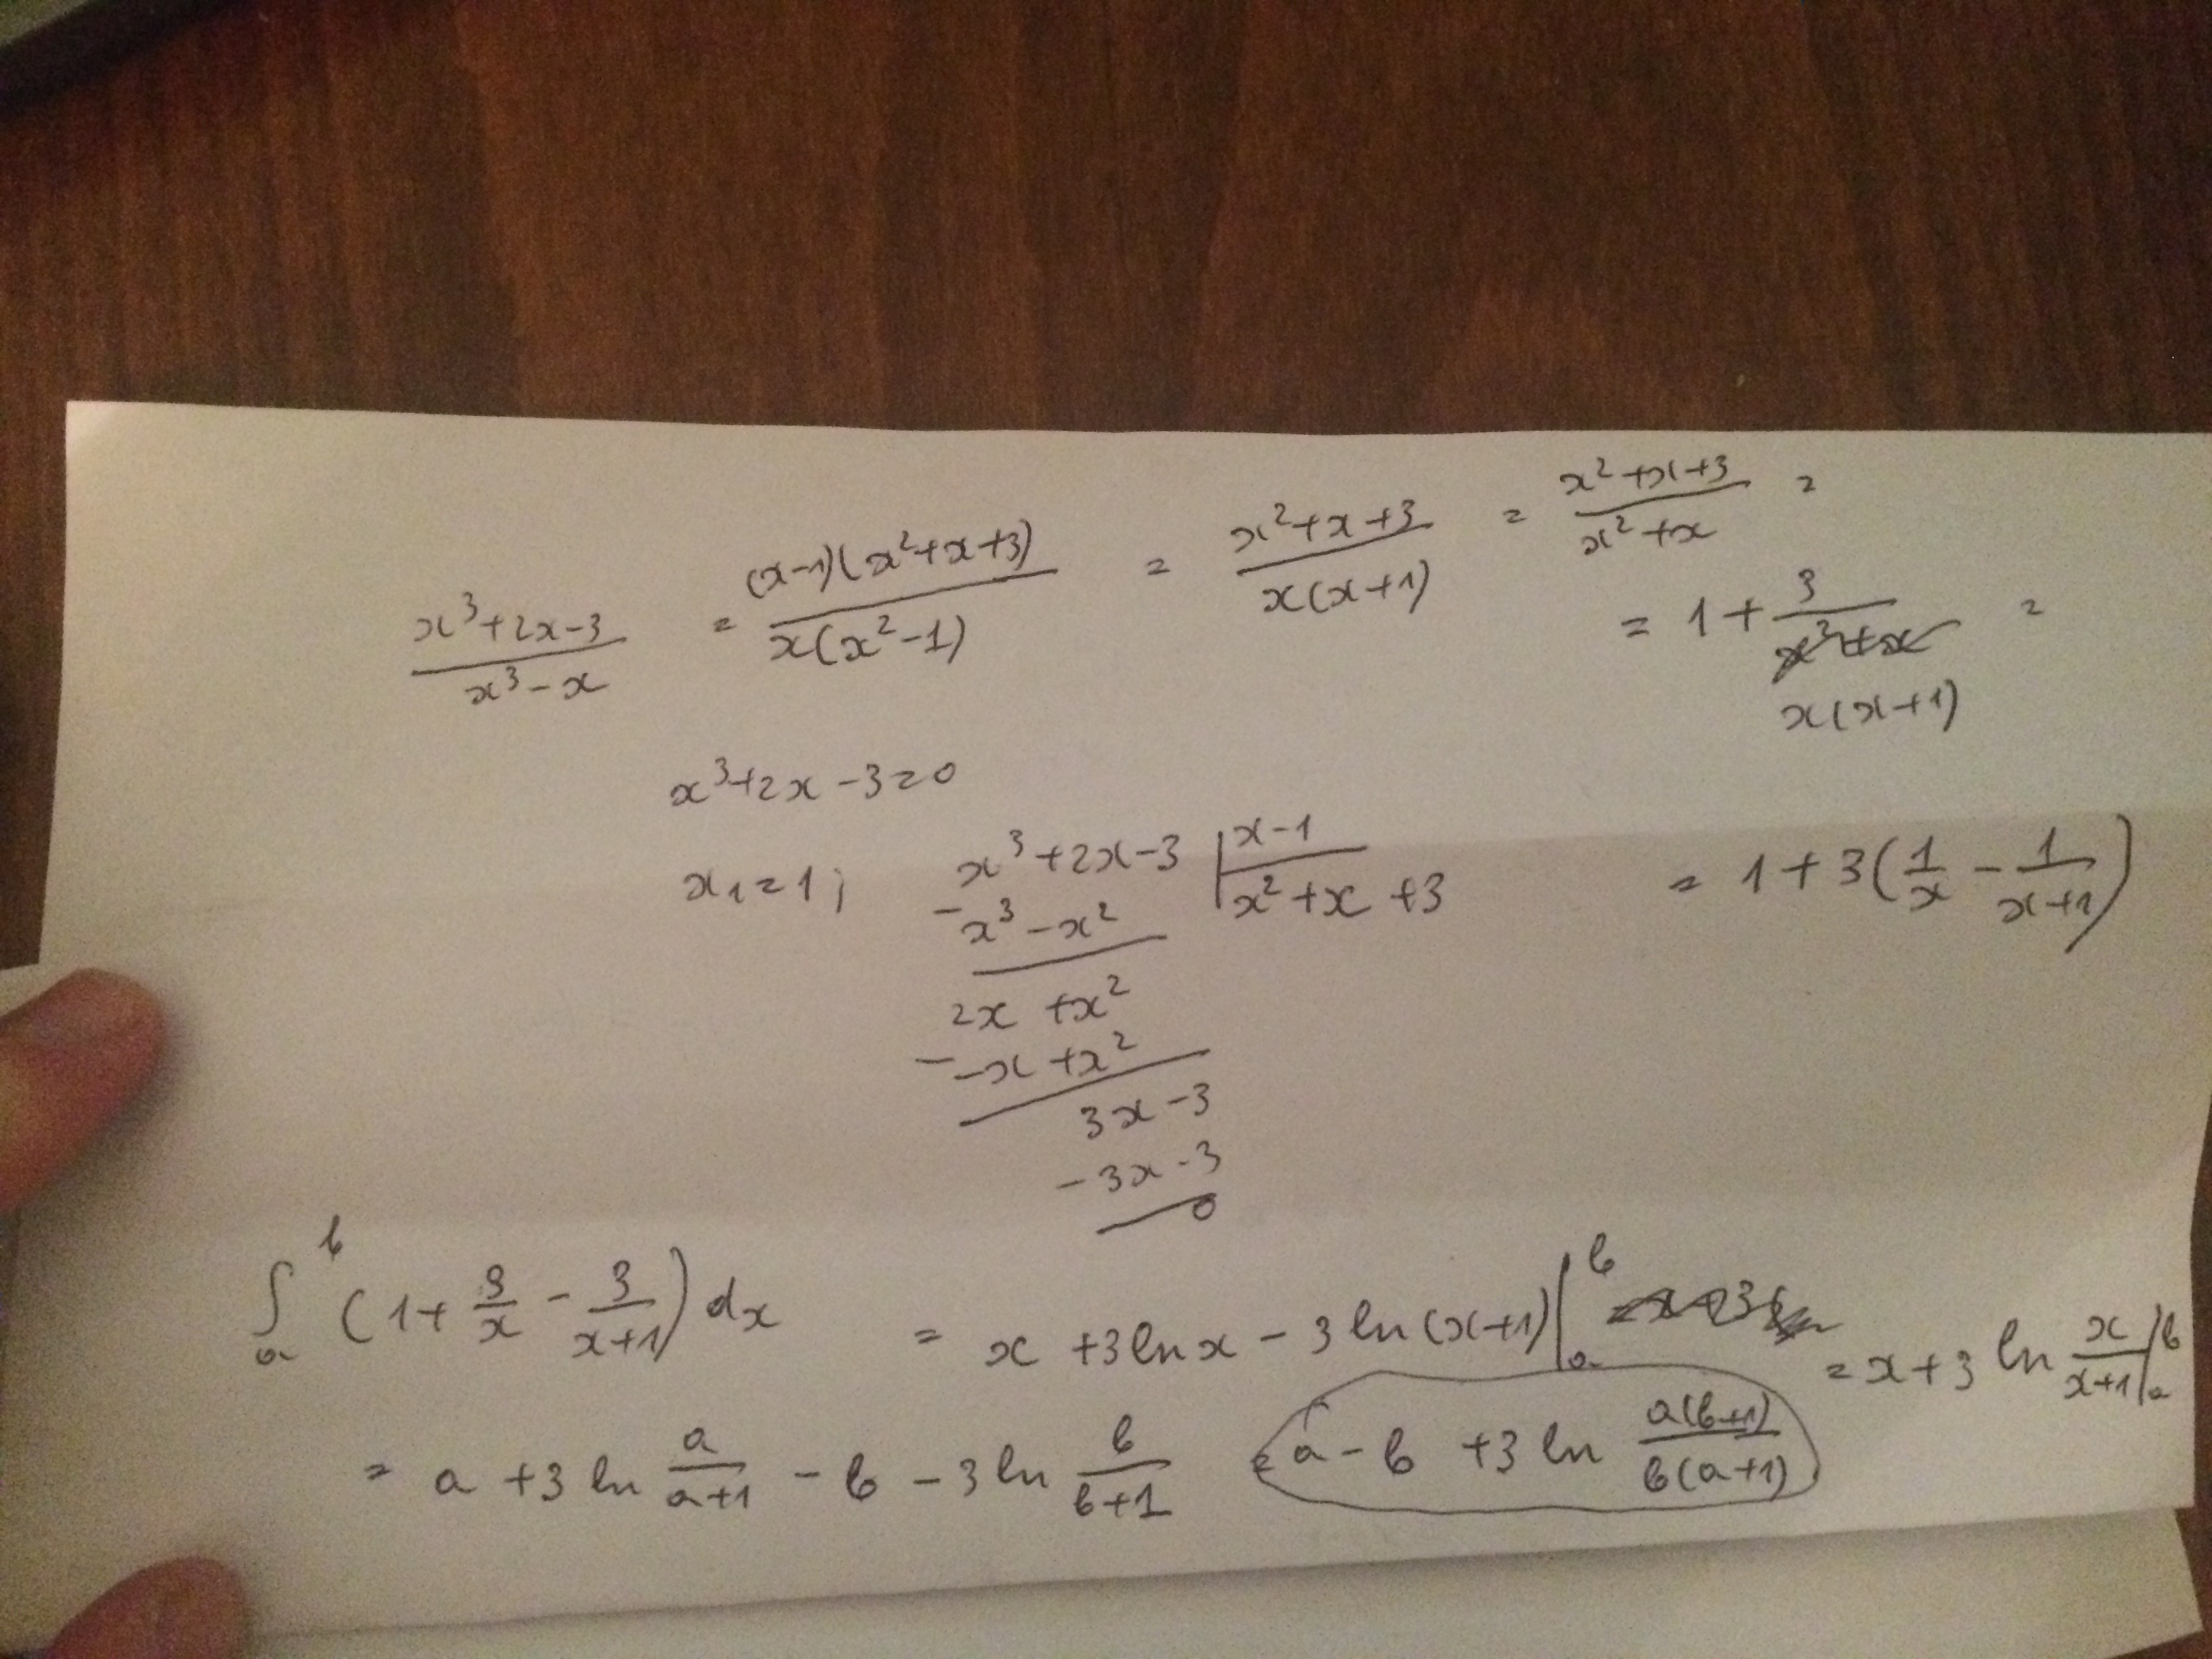 x³+2x-3 / x³-x = (x-1)(x²+x+3) / x(x²-1) = x²+x+3 / x(x+1) = x²+x+3 / x²+x =
= 1 + 3 / x(x+1) =
x³+2x-3=0
x₁=1; x³+2x-3 | x-1
- x³-x² | x²+x+3
= 1+3(1/x - 1/(x+1))
2x +x²
- -x +x²
3x-3
-3x-3
0
∫ₐᵇ (1+ 3/x - 3/(x+1)) dx = x +3 ln x - 3 ln(x+1) |ₐᵇ = x+3 ln x/(x+1) |ₐᵇ
= a +3 ln a/(a+1) - b - 3 ln b/(b+1) = a-b +3 ln a(b+1) / b(a+1)